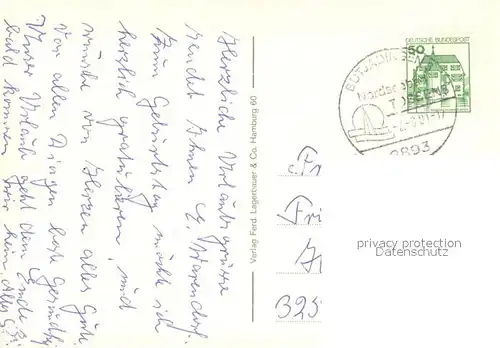 Herzliche Urlaubsgrüsse
sendet Ihnen E. Warendorf.
Zum Geburtstag möchte ich
herzlich gratulieren, und
wünsche von Herzen alles Gute
vor allen Dingen beste Gesundh
Unser Urlaub geht dem Ende
bald kommen wir heim. Alles
Verlag Ferd. Lagerbauer & Co. Hamburg 60
DEUTSCHE BUNDESPOST
50
BUTJADINGEN
Nordseebad
TOSSENS
2893
Fr
Fri
325
privacy protection
Datenschutz